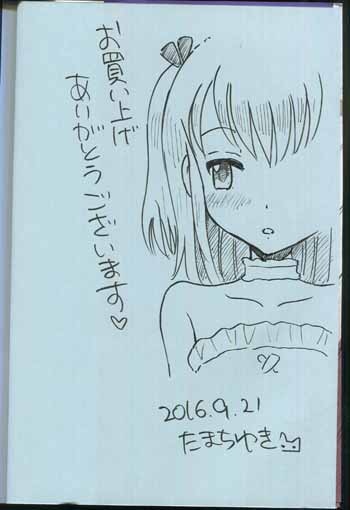 お買い上げ
ありがとうございます♡
2016.9.21
たまちゆき